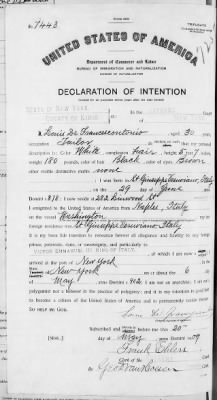 No 7443
TRIPLICATE
UNITED STATES OF AMERICA
Department of Commerce and Labor
BUREAU OF IMMIGRATION AND NATURALIZATION
DIVISION OF NATURALIZATION
DECLARATION OF INTENTION
STATE OF NEW YORK
COUNTY OF KINGS
aged 30 years,
occupation Tailor, do declare on oath that my personal
description is: Color White, complexion Fair, height 5 feet 7 inches,
weight 180 pounds, color of hair Black, color of eyes Brown
other visible distinctive marks none
I was born in St Giuseppe Vesuviano, Italy
on the 29 day of June, anno
Domini 1878; I now reside at
I emigrated to the United States of America from Naples, Italy
on the vessel Washington; my last
foreign residence was St Giuseppe Vesuviano, Italy
It is my bona fide intention to renounce forever all allegiance and fidelity to any foreign
prince, potentate, state, or sovereignty, and particularly to
VICTOR EMMANUEL III KING OF ITALY
arrived at the port of New York, in the
of New York on or about the 6 day
of May, anno Domini 1902; I am not an anarchist; I am not a
polygamist nor a believer in the practice of polygamy; and it is my intention in good faith
to become a citizen of the United States of America and to permanently reside therein:
SO HELP ME GOD.
Subscribed and sworn to before me this 20
[SEAL.] day of May, anno Domini 1909
Frank Ehlers